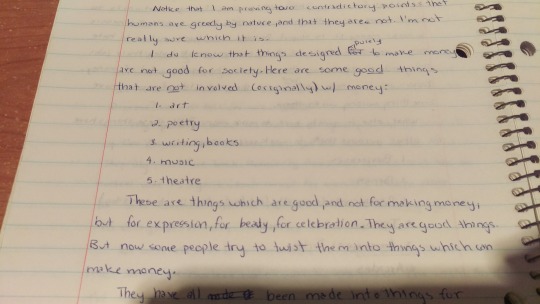 Notice that I am proving two contradictory points: that
humans are greedy by nature, and that they are not. I'm not
really sure which it is.
I do know that things designed purely to make money
are not good for society. Here are some good things
that are not involved (originally) w/ money:
1. art
2. poetry
3. writing, books
4. music
5. theatre
These are things which are good, and not for making money,
but for expression, for beauty, for celebration. They are good things.
But now some people try to twist them into things which can
make money.
They have all been made into things for